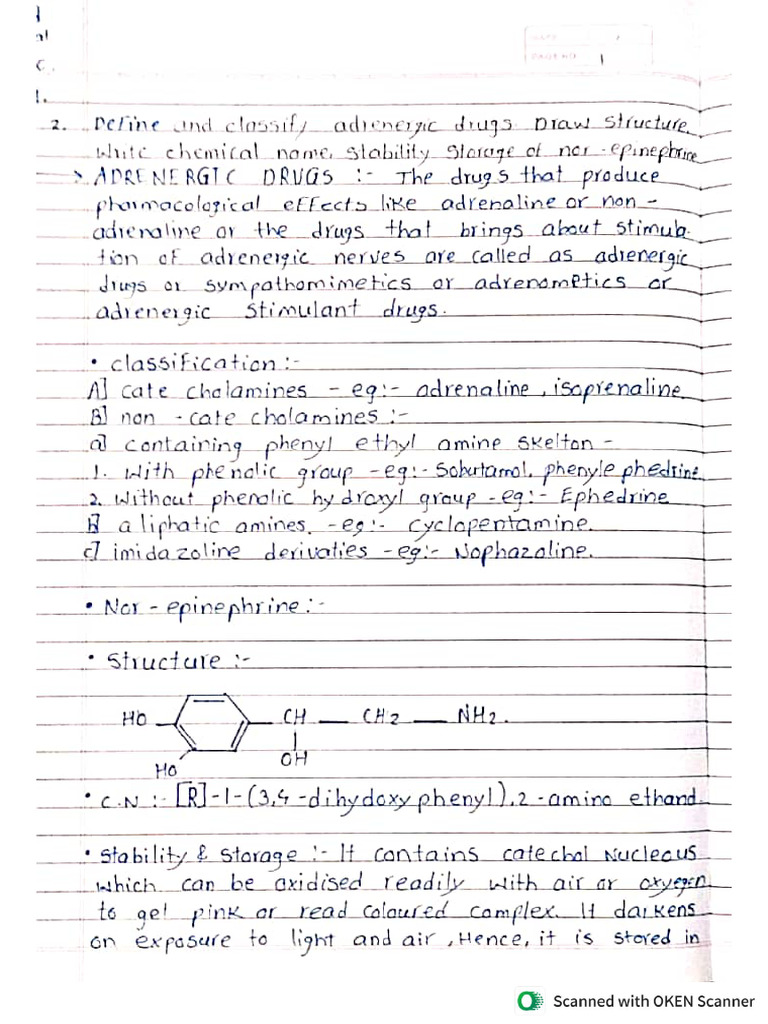 al
C.
1.
PAGE NO. 1
2. Define and classify adrenergic drugs. Draw structure
write chemical name, stability storage of nor-epinephrine
> ADRENERGIC DRUGS :- The drugs that produce
pharmacological effects like adrenaline or non-
adrenaline or the drugs that brings about stimula-
tion of adrenergic nerves are called as adrenergic
drugs or sympathomimetics or adrenometics or
adrenergic stimulant drugs.
• classification :-
A] cate cholamines - eg:- adrenaline, isoprenaline
B] non - cate cholamines :-
a] containing phenyl ethyl amine skelton -
1. With phenolic group - eg:- Salbutamol, phenyle phedrine
2. without phenolic hydroxyl group - eg:- Ephedrine
b] aliphatic amines. - eg:- cyclopentamine.
c] imidazoline derivaties - eg:- Naphazoline.
• Nor-epinephrine :-
• Structure :-
HO CH CH2 NH2.
OH
HO
• C.N :- [R]-1-(3,4-dihydoxyphenyl).2-amino ethanol.
• stability & storage :- It contains catechol Nucleous
which can be oxidised readily with air or oxyegen
to get pink or read coloured complex. It darkens
on exposure to light and air, Hence, it is stored in
Scanned with OKEN Scanner